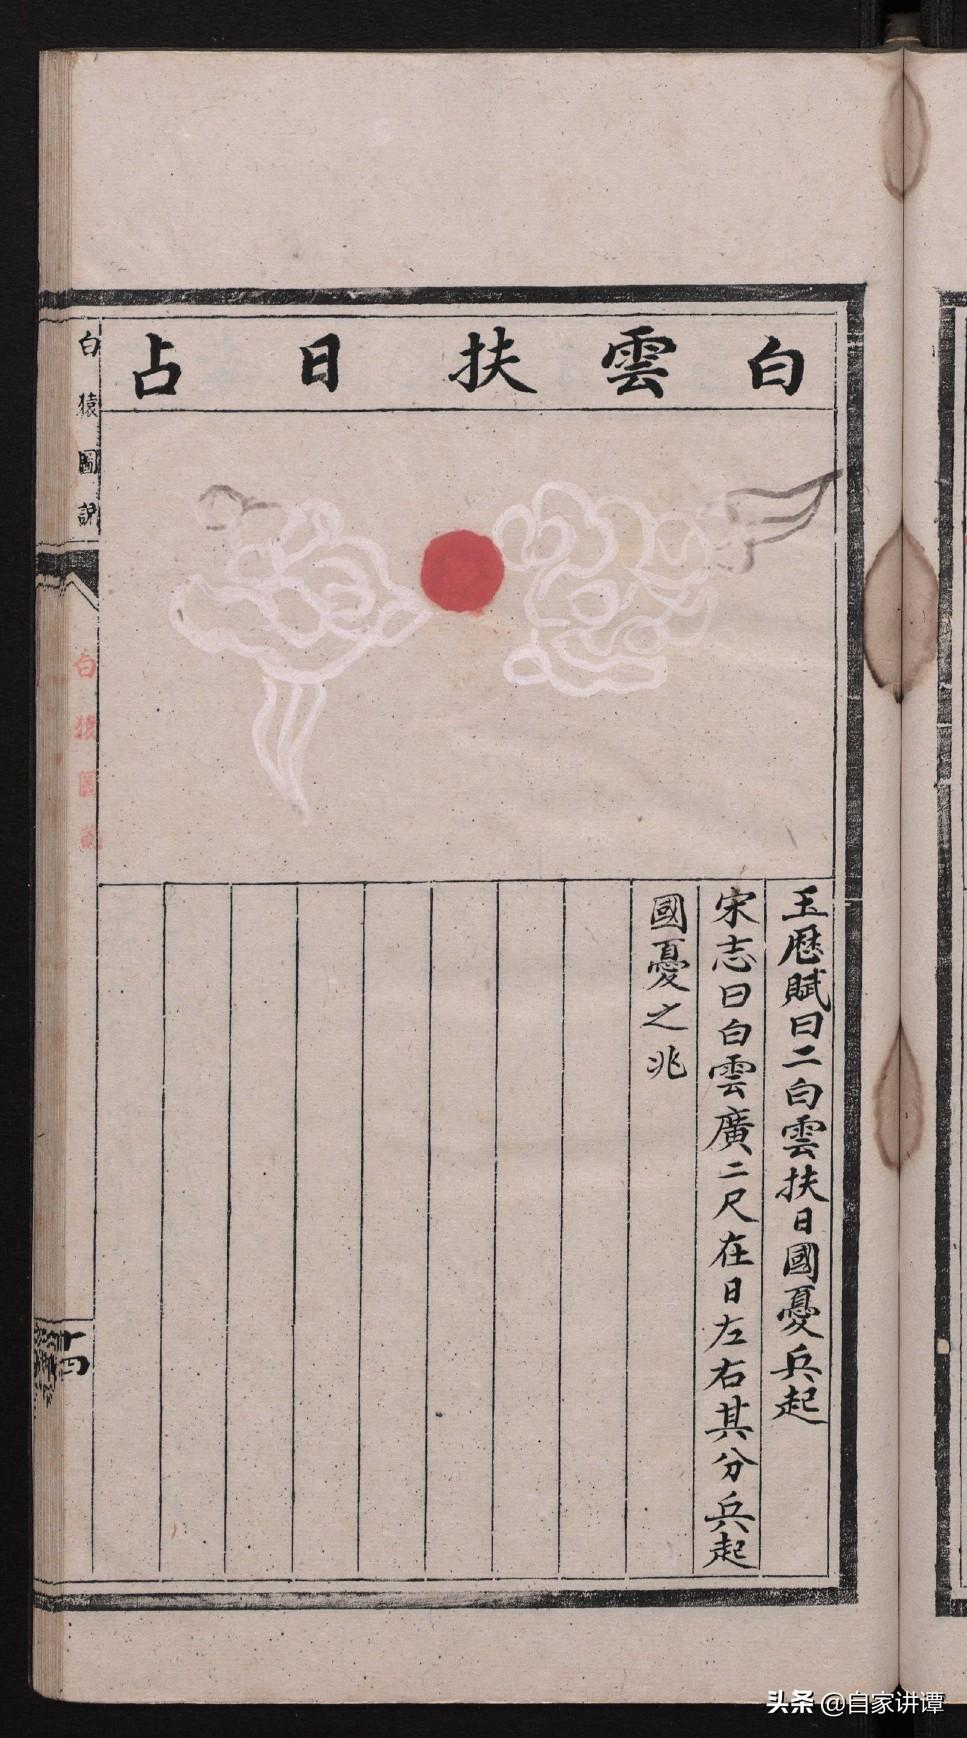 白雲扶日占
玉曆賦曰二白雲扶日國憂兵起
宋志曰白雲廣二尺在日左右其分兵起
國憂之兆
白猿圖說
白猿圖說
十四
头条 @自家讲谭